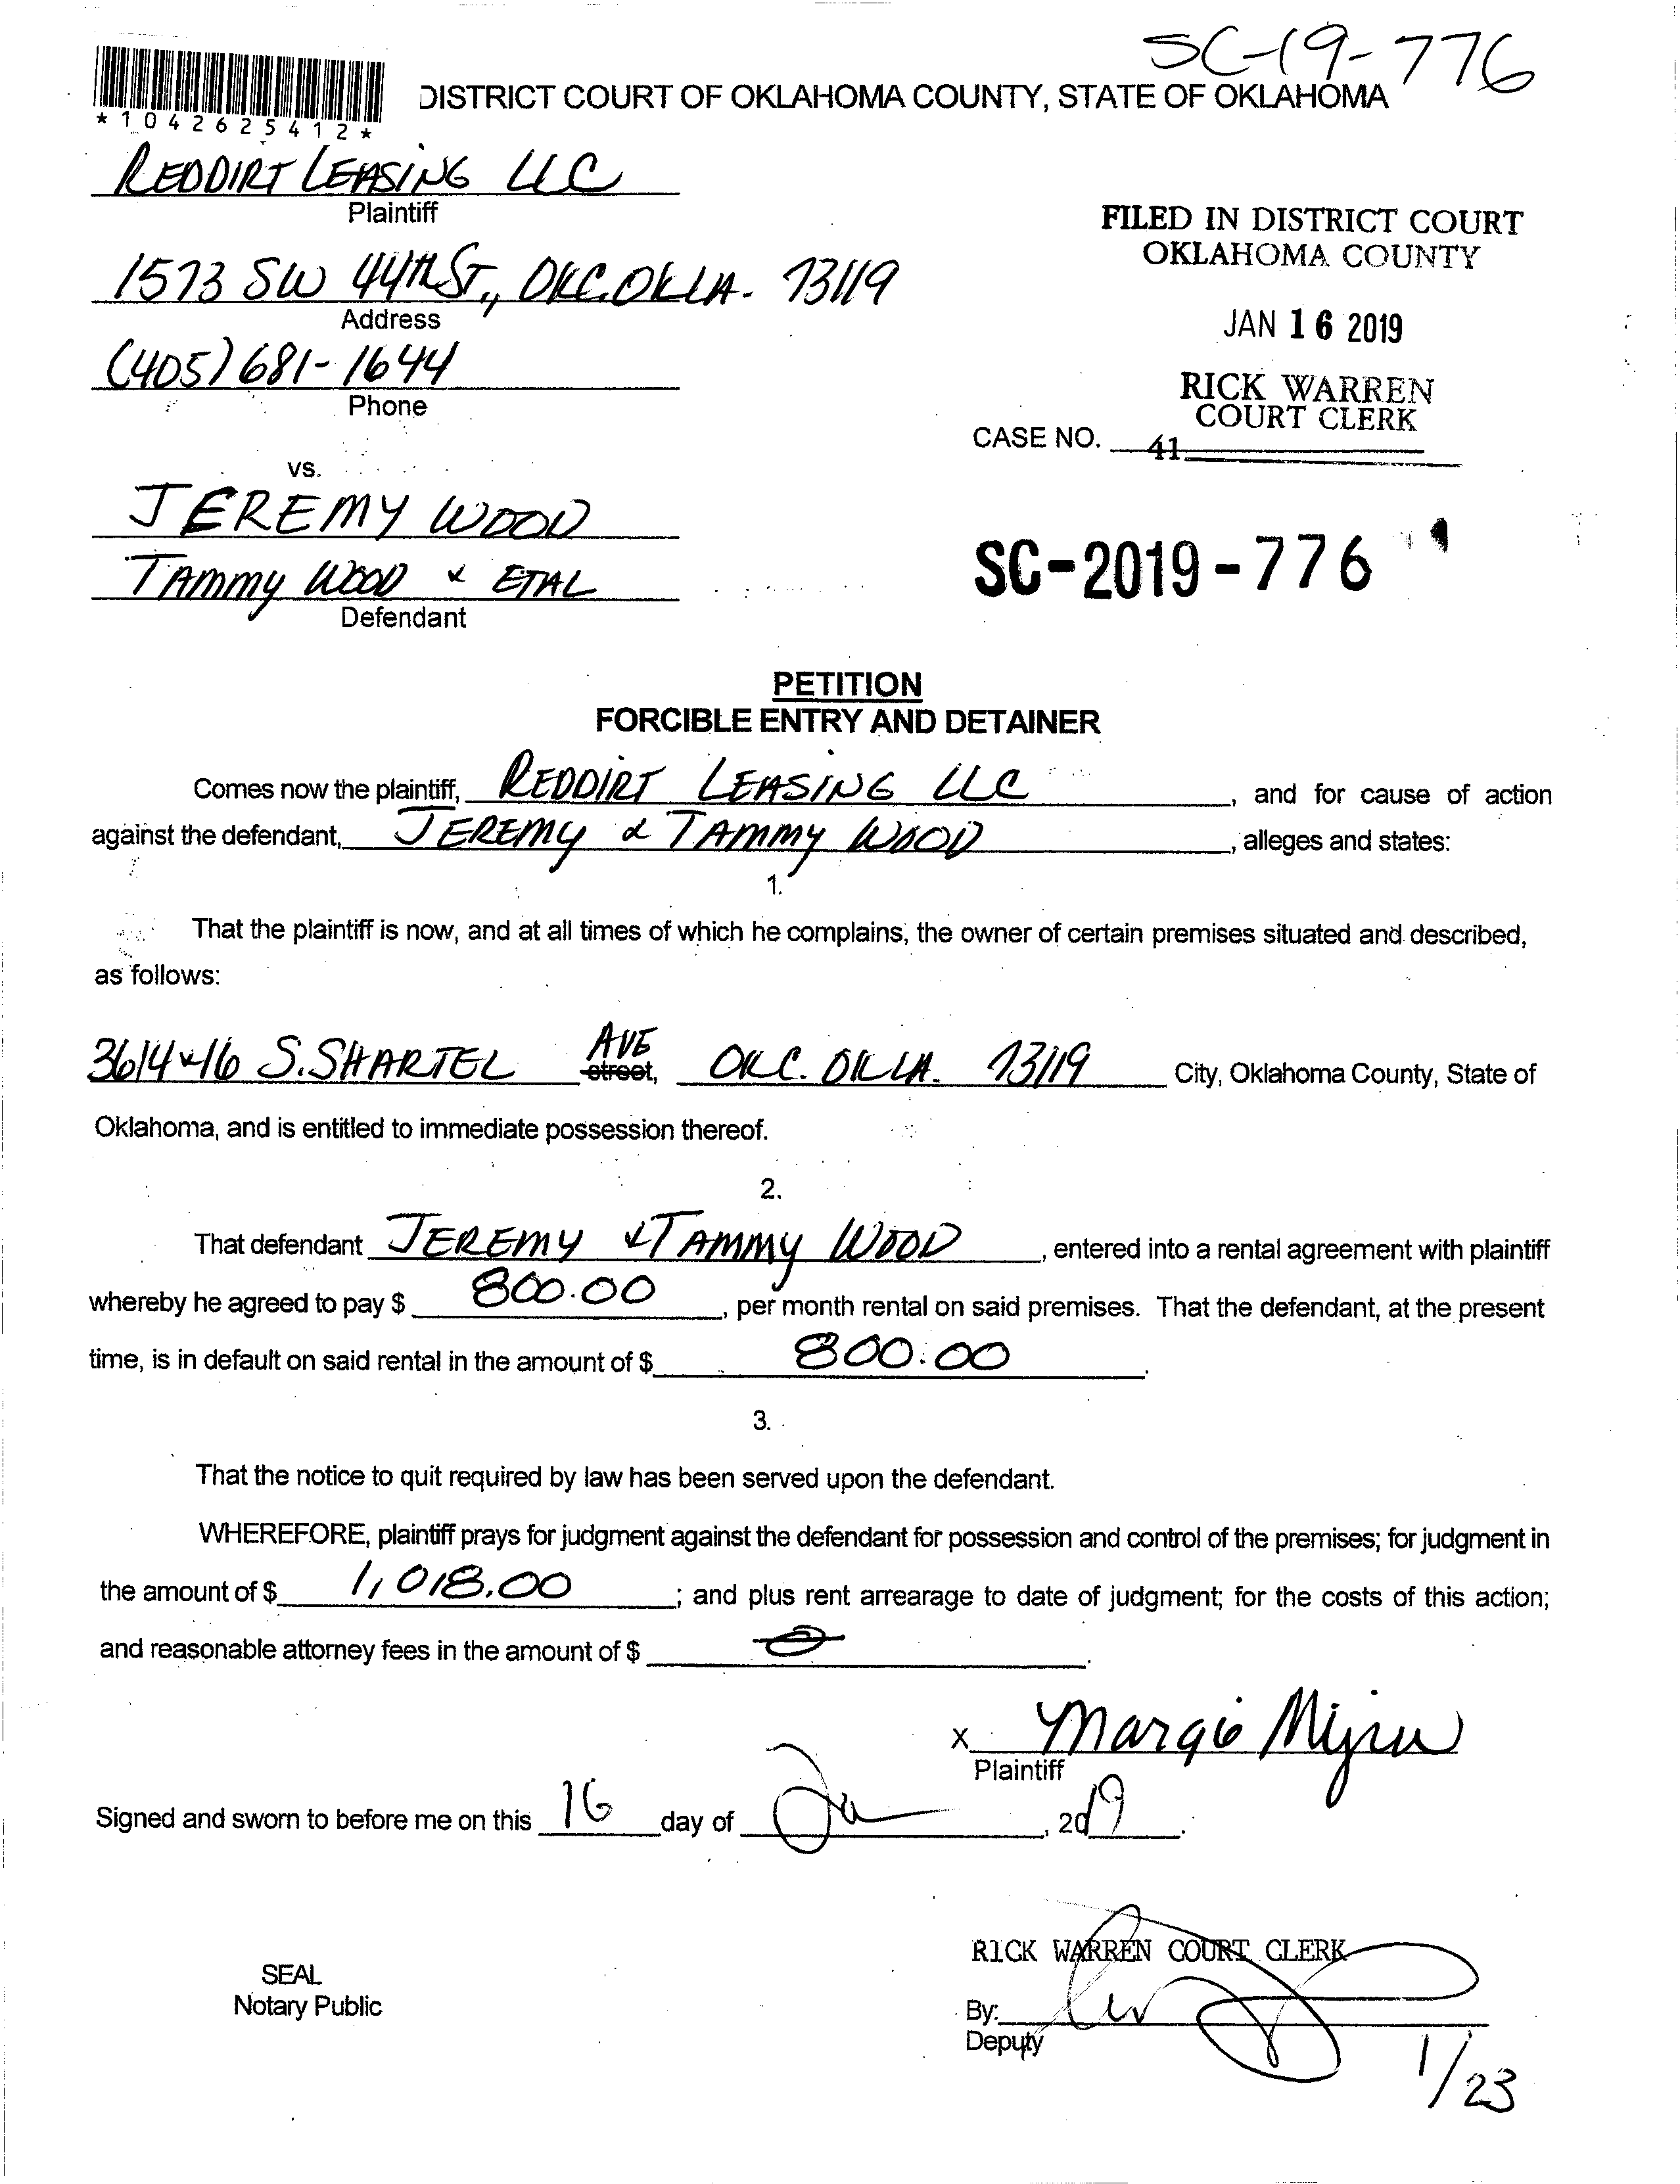 SC-19-776
DISTRICT COURT OF OKLAHOMA COUNTY, STATE OF OKLAHOMA
*1042625412*
REDDIRT LEASING LLC
Plaintiff
FILED IN DISTRICT COURT
OKLAHOMA COUNTY
1573 SW 44TH ST., OKC. OKLA. 73119
Address
JAN 16 2019
(405) 681-1644
Phone
RICK WARREN
COURT CLERK
CASE NO. 41
vs.
JEREMY WOOD
TAMMY WOOD & ETAL
Defendant
SC-2019-776
PETITION
FORCIBLE ENTRY AND DETAINER
Comes now the plaintiff, REDDIRT LEASING LLC, and for cause of action
against the defendant, JEREMY & TAMMY WOOD, alleges and states:
1.
That the plaintiff is now, and at all times of which he complains, the owner of certain premises situated and described,
as follows:
3614 & 16 S. SHARTEL AVE street, OKC. OKLA. 73119 City, Oklahoma County, State of
Oklahoma, and is entitled to immediate possession thereof.
2.
That defendant JEREMY & TAMMY WOOD, entered into a rental agreement with plaintiff
whereby he agreed to pay $ 800.00, per month rental on said premises. That the defendant, at the present
time, is in default on said rental in the amount of $ 800.00.
3.
That the notice to quit required by law has been served upon the defendant.
WHEREFORE, plaintiff prays for judgment against the defendant for possession and control of the premises; for judgment in
the amount of $ 1,018.00; and plus rent arrearage to date of judgment; for the costs of this action;
and reasonable attorney fees in the amount of $ 0.
X Margie
Plaintiff
Signed and sworn to before me on this 16 day of Jan, 2019.
RICK WARREN COURT CLERK
SEAL
Notary Public
By:
Deputy
1/23